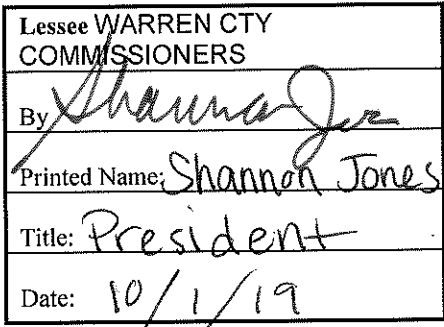 Lessee WARREN CTY
COMMISSIONERS
By Shannon Jones
Printed Name: Shannon Jones
Title: President
Date: 10/1/19